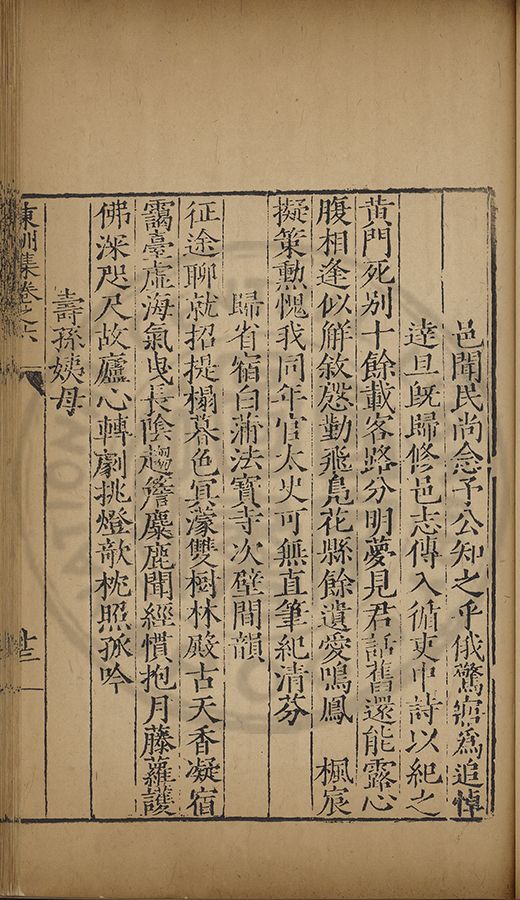 邑聞民尚念予公知之乎俄驚寤為追悼
達旦旣歸修邑志傳入循吏中詩以紀之
黄門死别十餘載客路分明夢見君話舊還能露心
腹相逢似觧敘慇勤飛鳬花縣餘遺愛鳴鳳 楓宸
擬策勲愧我同年官太史可無直筆紀清芬
歸省宿白蒲法寶寺次壁間韻
征途聊就招提榻暮色冥濛雙樹林殿古天香凝宿
靄臺虛海氣曳長陰趨簷麋鹿聞經慣抱月藤蘿護
佛深咫尺故廬心轉劇挑燈欹枕照孤吟
壽孫姨母
東洲集卷之六
廿三